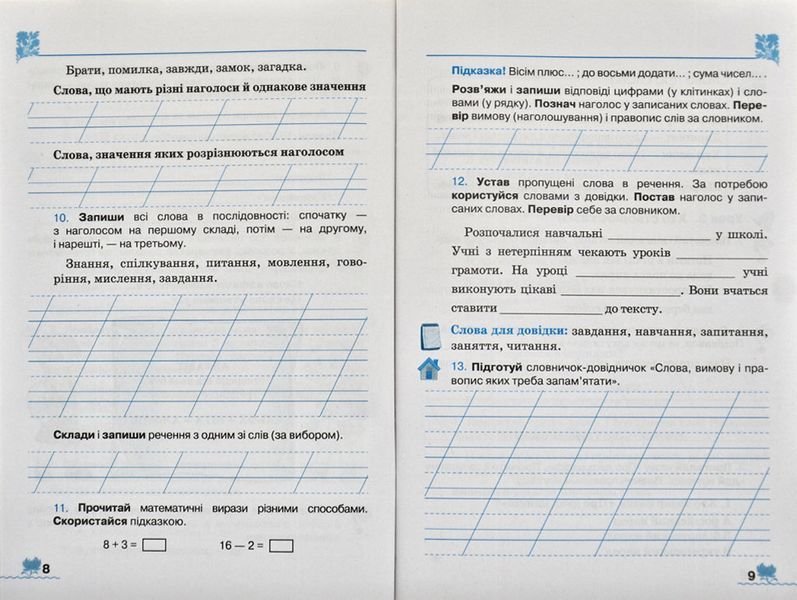 Брати, помилка, завжди, замок, загадка.
Слова, що мають різні наголоси й однакове значення
Слова, значення яких розрізнюються наголосом
10. Запиши всі слова в послідовності: спочатку —
з наголосом на першому складі, потім — на другому,
і нарешті, — на третьому.
Знання, спілкування, питання, мовлення, гово-
ріння, мислення, завдання.
Склади і запиши речення з одним зі слів (за вибором).
11. Прочитай математичні вирази різними способами.
Скористайся підказкою.
8 + 3 = 16 — 2 =
8
Підказка! Вісім плюс... ; до восьми додати... ; сума чисел... .
Розв'яжи і запиши відповіді цифрами (у клітинках) і сло-
вами (у рядку). Познач наголос у записаних словах. Пере-
вір вимову (наголошування) і правопис слів за словником.
12. Устав пропущені слова в речення. За потребою
користуйся словами з довідки. Постав наголос у запи-
саних словах. Перевір себе за словником.
Розпочалися навчальні ______ у школі.
Учні з нетерпінням чекають уроків ______
грамоти. На уроці ______ учні
виконують цікаві ______. Вони вчаться
ставити ______ до тексту.
Слова для довідки: завдання, навчання, запитання,
заняття, читання.
13. Підготуй словничок-довідничок «Слова, вимову і пра-
вопис яких треба запам'ятати».
9